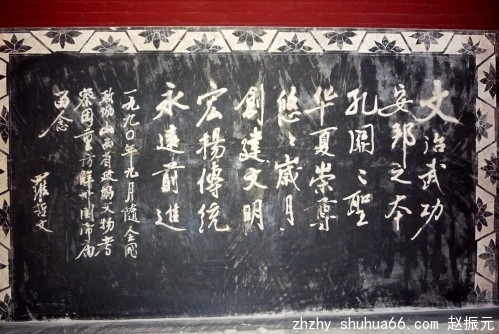 文治武功
安邦之本
孔關二聖
华夏崇尊
悠々歲月
創建文明
宏揚傳統
永遠前進
一九九〇年九月隨全国
政协山西省政协文物考
察团重访解州関帝庙
留念
羅哲文
zhzhy.shuhua66.com 赵振元